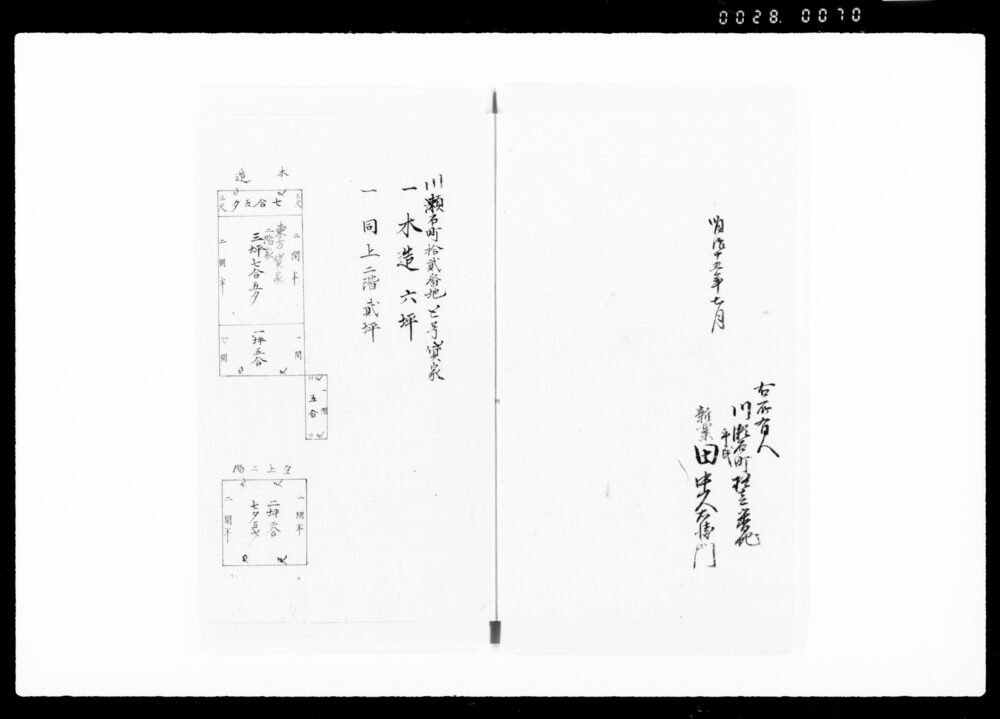 0028. 0070
明治十五年七月
右所有人
川瀬石町拾三番地
平民
新業
田中久右衛門
川瀬石町拾貳番地と号貸家
一木造六坪
一同上二階貳坪
木造
三尺
七合五夕
三尺
二間半
東方貸家
二階家
三坪七合五夕
二間半
一間
一坪五合
一間
一間
五合
仝上二階
一間半
二坪二合
二間半